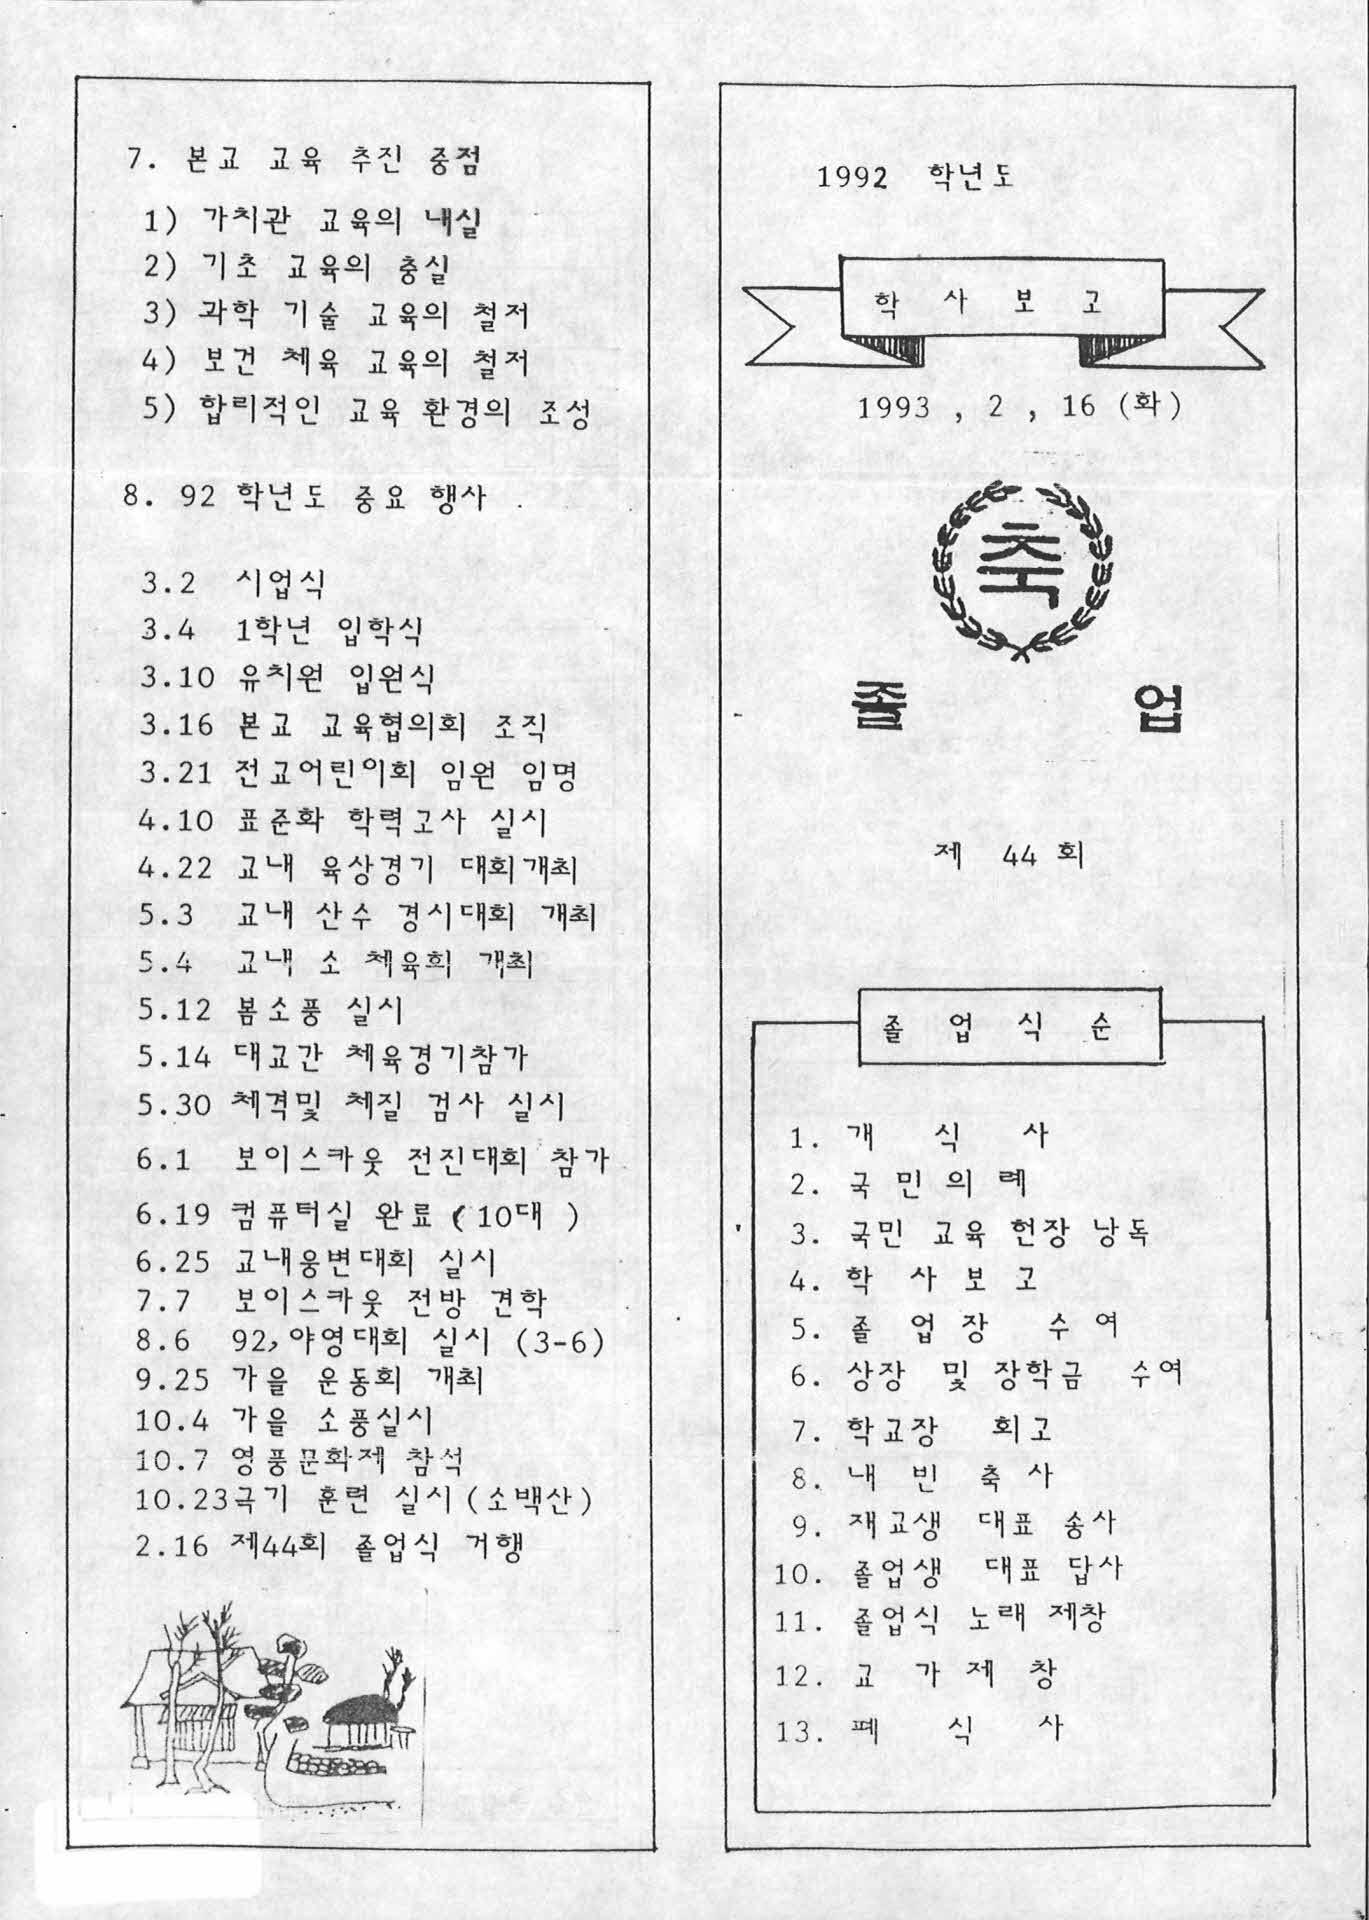 7. 본교 교육 추진 중점
1) 가치관 교육의 내실
2) 기초 교육의 충실
3) 과학 기술 교육의 철저
4) 보건 체육 교육의 철저
5) 합리적인 교육 환경의 조성
8. 92 학년도 중요 행사
3.2 시업식
3.4 1학년 입학식
3.10 유치원 입원식
3.16 본교 교육협의회 조직
3.21 전교어린이회 임원 임명
4.10 표준화 학력고사 실시
4.22 교내 육상경기 대회개최
5.3 교내 산수 경시대회 개최
5.4 교내 소 체육회 개최
5.12 봄소풍 실시
5.14 대교간 체육경기참가
5.30 체격및 체질 검사 실시
6.1 보이스카웃 전진대회 참가
6.19 컴퓨터실 완료 ( 10대 )
6.25 교내웅변대회 실시
7.7 보이스카웃 전방 견학
8.6 92,야영대회 실시 (3-6)
9.25 가을 운동회 개최
10.4 가을 소풍실시
10.7 영풍문화제 참석
10.23극기 훈련 실시(소백산)
2.16 제44회 졸업식 거행
1992 학년도
학 사 보 고
1993 , 2 , 16 (화)
축
졸 업
제 44 회
졸 업 식 순
1. 개 식 사
2. 국 민 의 례
3. 국민 교육 헌장 낭독
4. 학 사 보 고
5. 졸 업 장 수 여
6. 상장 및 장학금 수여
7. 학교장 회고
8. 내 빈 축 사
9. 재교생 대표 송사
10. 졸업생 대표 답사
11. 졸업식 노래 제창
12. 교 가 제 창
13. 폐 식 사